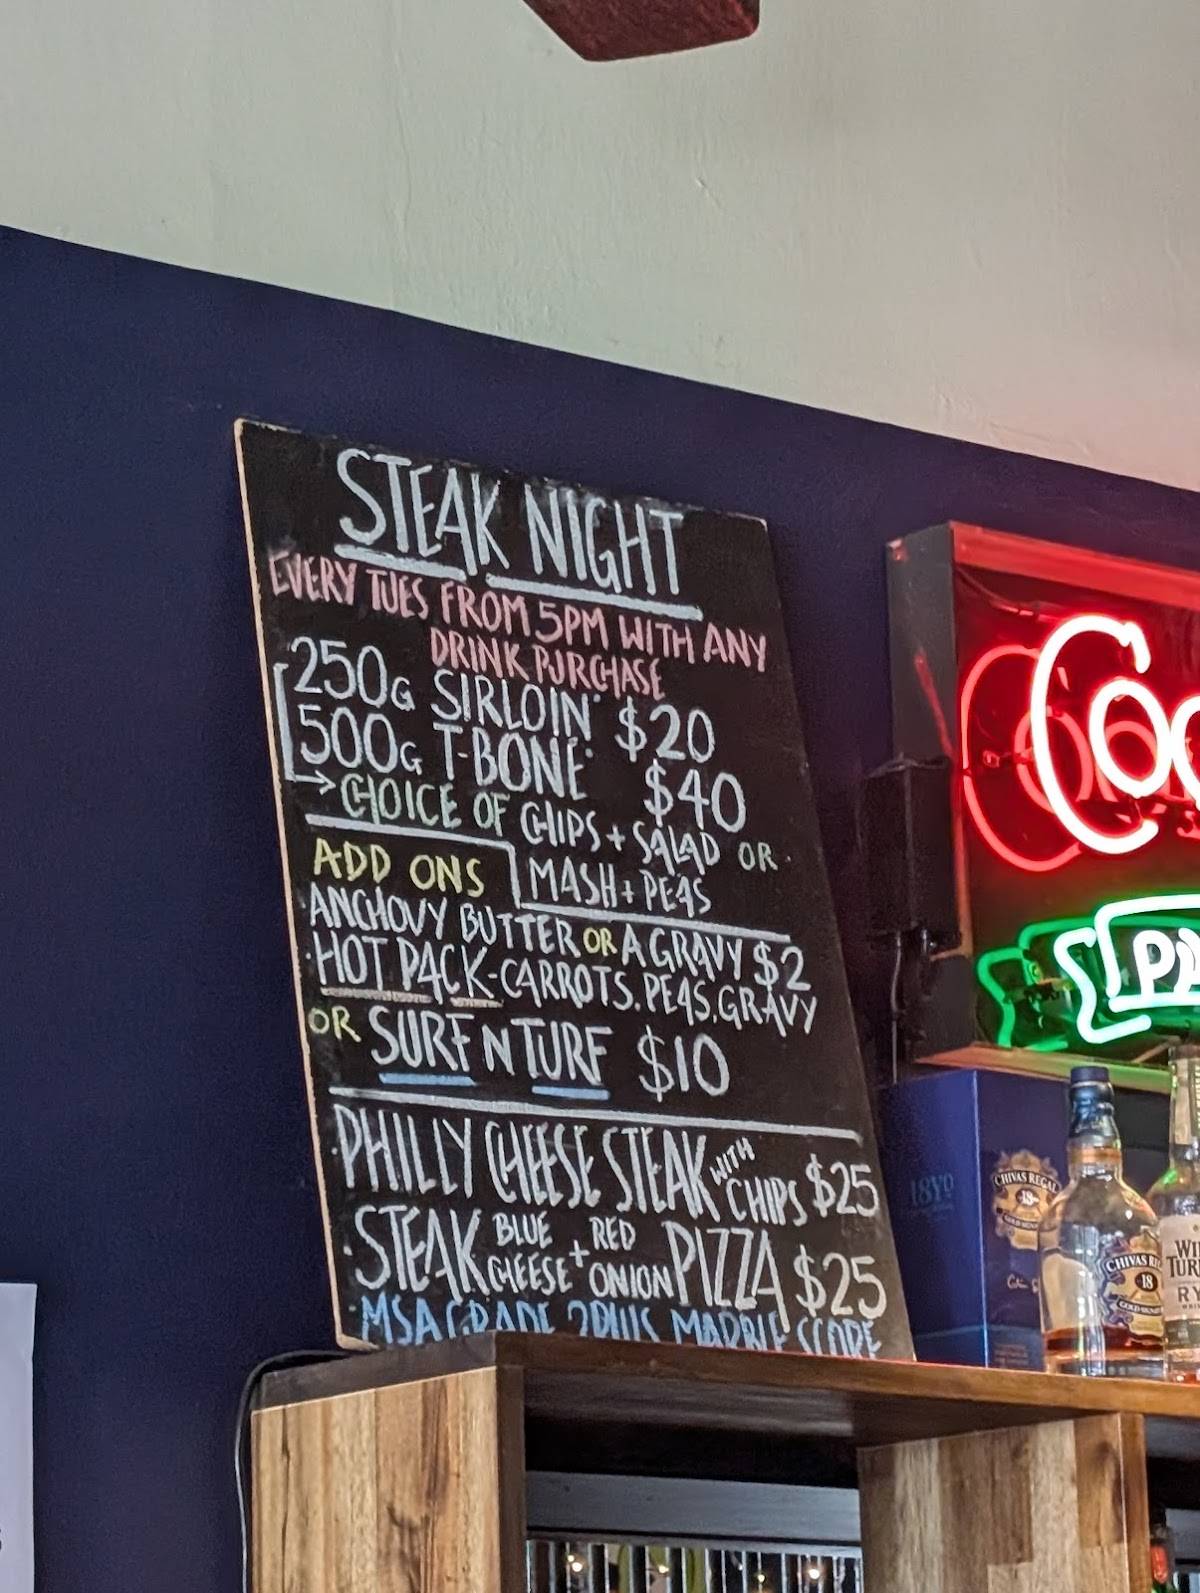 STEAK NIGHT
EVERY TUES FROM 5PM WITH ANY
DRINK PURCHASE
250G SIRLOIN $20
500G T-BONE $40
→ CHOICE OF CHIPS + SALAD OR
MASH + PEAS
ADD ONS
ANCHOVY BUTTER OR A GRAVY $2
HOT PACK - CARROTS, PEAS, GRAVY
OR SURF N TURF $10
PHILLY CHEESE STEAK WITH CHIPS $25
STEAK BLUE CHEESE + RED ONION PIZZA $25
MSA GRADE 2 PLUS MARBLE SCORE
Coo
PA
18YO
CHIVAS REGAL
18
GOLD SIGNATURE
CHIVAS RE
18
GOLD SIGNAT
WI
TUR
RY